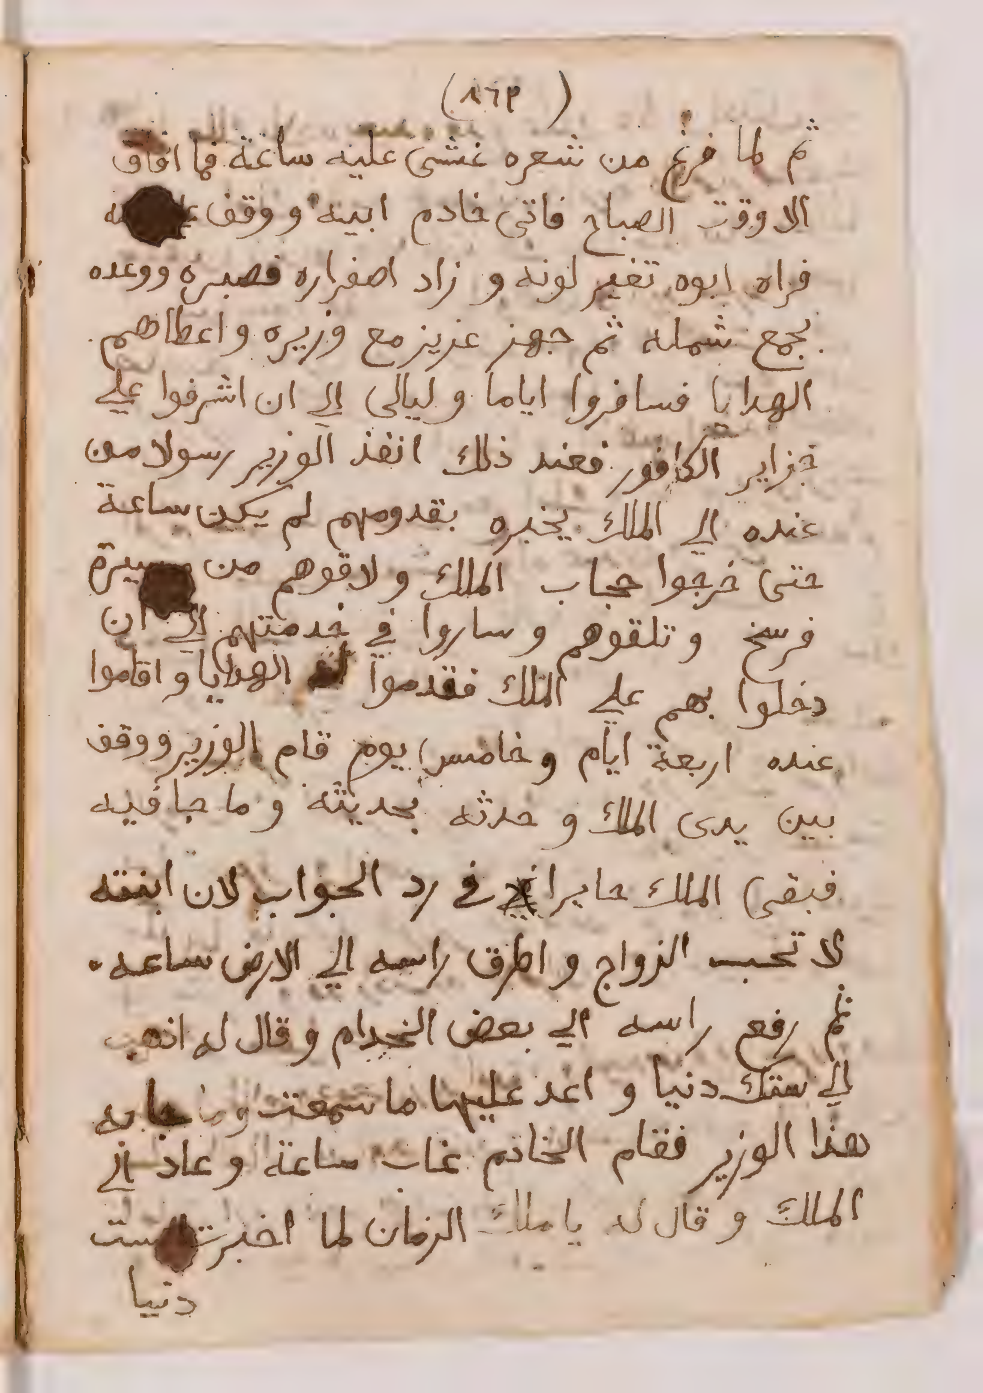 (١٦٩)
ثم لما فرغ من شعره غشى عليه ساعة فما افاق
الا وقت الصباح فاتى خادم ابيه ووقف
فراه ابوه تغير لونه و زاد اصفراره فصبره ووعده
بجمع شمله ثم جهز عزيز مع وزيره و اعطاهم
الهدايا فسافروا اياما و ليالى الي ان اشرفوا علي
جزاير الكافور فعند ذلك انفذ الوزير رسولا من
عنده الي الملك يخبره بقدومهم لم يكن ساعة
حتى خرجوا حجاب الملك و لاقوهم من مسيرة
فرسخ و تلقوهم و ساروا في خدمتهم الي ان
دخلوا بهم علي الملك فقدموا له الهدايا و اقاموا
عنده اربعة ايام و خامس يوم قام الوزير ووقف
بين يدى الملك و حدثه بحديثه و ما جا فيه
فبقى الملك حايرا في رد الجواب لان ابنته
لا تحب الزواج و اطرق راسه الي الارض ساعه .
ثم رفع راسه الي بعض الخدام و قال له اذهب
الي ستك دنيا و اعد عليها ما سمعت وما جا به
هذا الوزير فقام الخادم غاب ساعة و عاد الي
الملك و قال له يا ملك الزمان لما اخبرت الست
دنيا